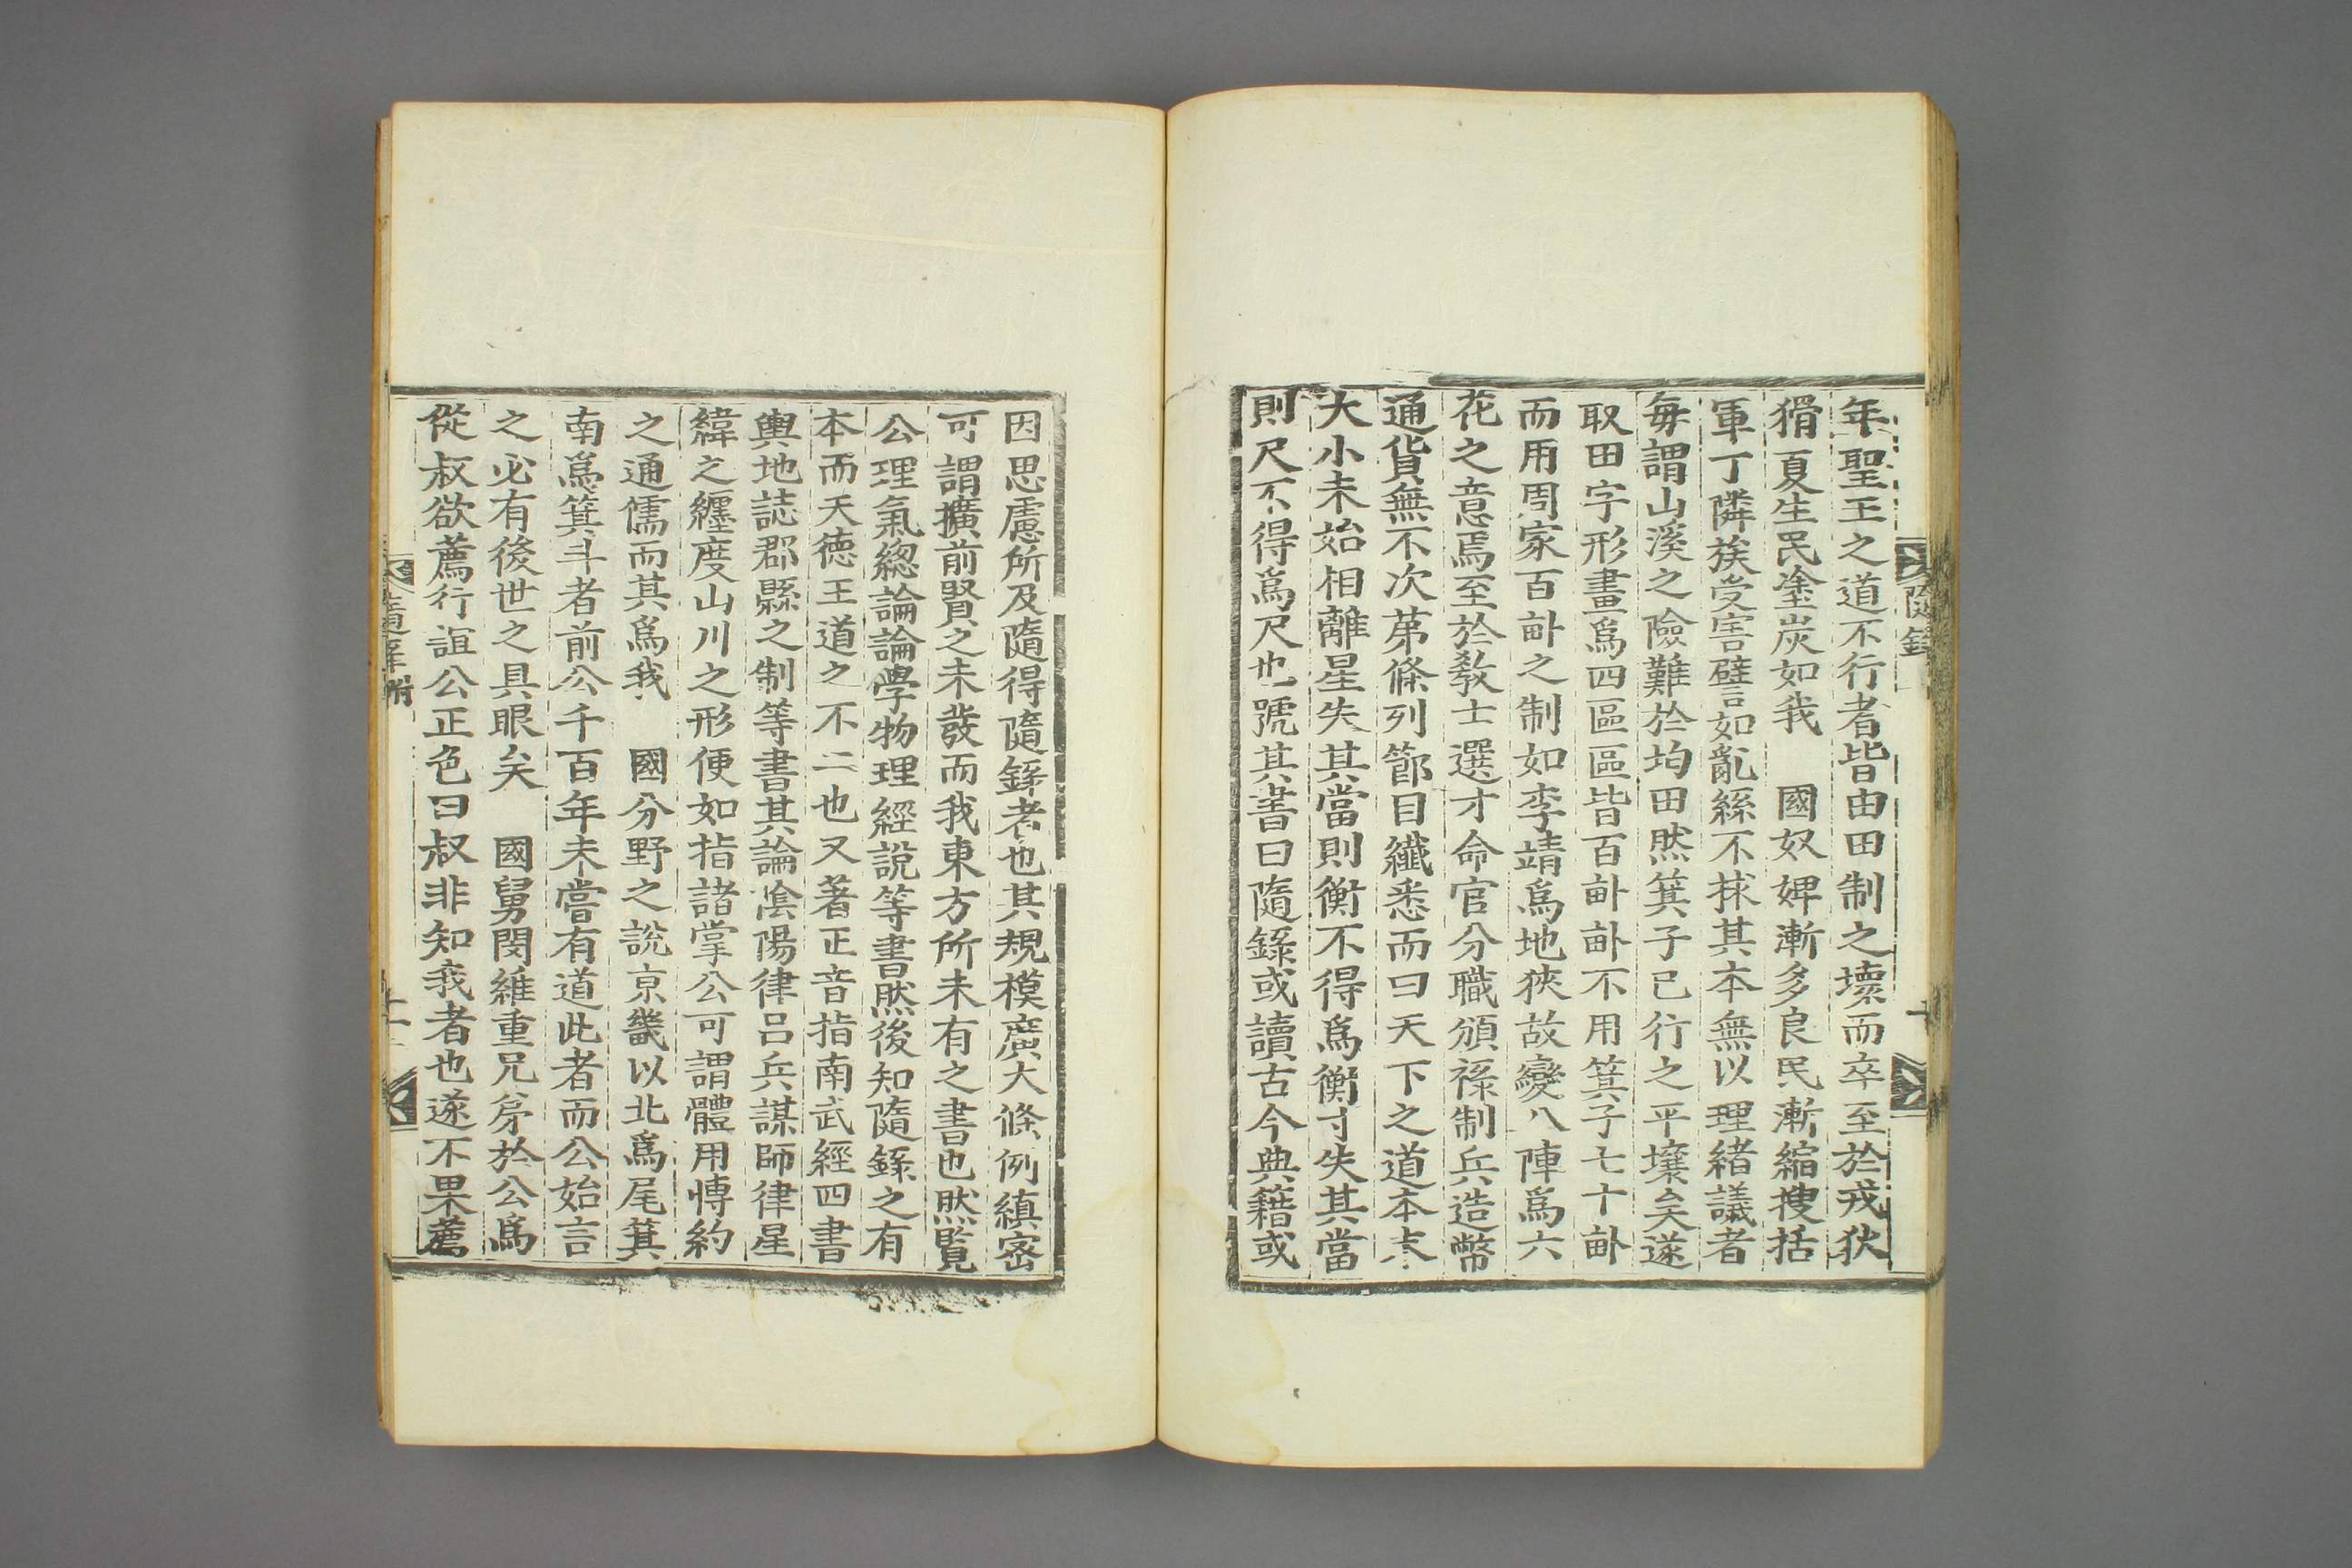 年聖王之道不行者皆由田制之壞而卒至於戎狄
猾夏生民塗炭如我　國奴婢漸多良民漸縮搜括
軍丁隣族受害譬如亂絲不捄其本無以理緖議者
每謂山溪之險難於均田然箕子已行之平壤矣遂
取田字形畫爲四區區皆百畝畝不用箕子七十畝
而用周家百畝之制如李靖爲地狹故變八陣爲六
花之意焉至於敎士選才命官分職頒祿制兵造幣
通貨無不次苐條列節目纖悉而曰天下之道本末
大小未始相離星失其當則衡不得爲衡寸失其當
則尺不得爲尺也號其書曰隨錄或讀古今典籍或
隨錄
十
因思慮所及隨得隨錄者也其規模廣大條例縝密
可謂擴前賢之未發而我東方所未有之書也然覽
公理氣緫論論學物理經說等書然後知隨錄之有
本而天德王道之不二也又著正音指南武經四書
輿地誌郡縣之制等書其論陰陽律呂兵謀師律星
緯之纏度山川之形便如指諸掌公可謂體用博約
之通儒而其爲我　國分野之說京畿以北爲尾箕
南爲箕斗者前公千百年未嘗有道此者而公始言
之必有後世之具眼矣　國舅閔維重兄弟於公爲
從叔欲薦行誼公正色曰叔非知我者也遂不果薦
隨錄附
十一